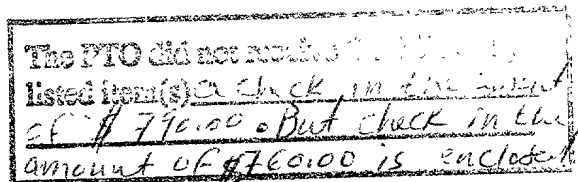 The PTO did not receive the following
listed item(s) a check in the amount
of $790.00. But check in the
amount of $760.00 is enclosed